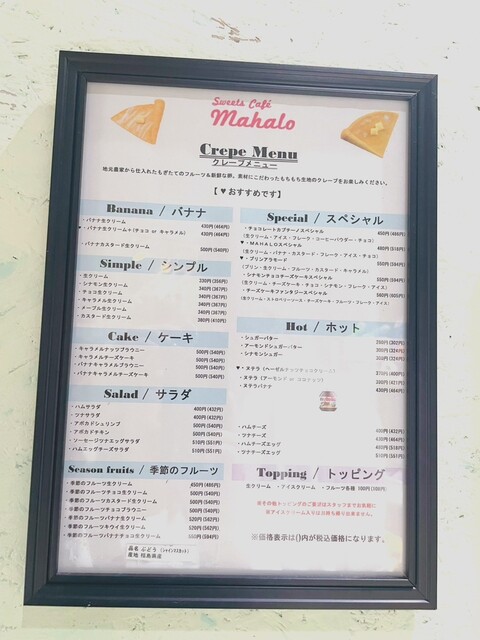 Sweets Café
Mahalo
Crepe Menu
クレープメニュー
地元農家から仕入れたもぎたてのフルーツ&新鮮な卵。素材にこだわったもちもち生地のクレープをお楽しみください。
【 ♥おすすめです】
Banana / バナナ
・バナナ生クリーム 430円(464円)
♥・バナナ生クリーム+(チョコ or キャラメル) 430円(464円)
・バナナカスタード生クリーム 500円(540円)
Simple / シンプル
・生クリーム 330円(356円)
・シナモン生クリーム 340円(367円)
・チョコ生クリーム 340円(367円)
・キャラメル生クリーム 340円(367円)
・メープル生クリーム 340円(367円)
・カスタード生クリーム 380円(410円)
Cake / ケーキ
・キャラメルナッツブラウニー 500円(540円)
・キャラメルチーズケーキ 500円(540円)
・バナナキャラメルブラウニー 500円(540円)
・バナナキャラメルチーズケーキ 500円(540円)
Salad / サラダ
・ハムサラダ 400円(432円)
・ツナサラダ 400円(432円)
・アボカドシュリンプ 500円(540円)
・アボカドチキン 500円(540円)
・ソーセージツナエッグサラダ 510円(551円)
・ハムエッグチーズサラダ 510円(551円)
Season fruits / 季節のフルーツ
・季節のフルーツ生クリーム 450円(486円)
・季節のフルーツチョコ生クリーム 500円(540円)
・季節のフルーツカスタード生クリーム 500円(540円)
・季節のフルーツチョコブラウニー 500円(540円)
・季節のフルーツバナナ生クリーム 520円(562円)
・季節のフルーツキウイ生クリーム 520円(562円)
・季節のフルーツバナナチョコ生クリーム 550円(594円)
品名 ぶどう(シャインマスカット)
産地 福島県産
Special / スペシャル
・チョコレートカプチーノスペシャル 450円(486円)
(生クリーム・アイス・フレーク・コーヒーパウダー・チョコ)
♥・MAHALOスペシャル
(生クリーム・バナナ・カスタード・フレーク・アイス・チョコ)
♥・プリンアラモード 550円(594円)
(プリン・生クリーム・フルーツ・カスタード・キャラメル)
・シナモンチョコチーズケーキスペシャル 550円(594円)
(生クリーム・チーズケーキ・チョコ・シナモン・フレーク・アイス)
・チーズケーキファンタジースペシャル 560円(605円)
(生クリーム・ストロベリーソース・チーズケーキ・フルーツ・フレーク・アイス)
Hot / ホット
・シュガーバター
・アーモンドシュガーバター
・シナモンシュガー
♥・ヌテラ
・ヌテラ
・ヌテラバナナ 430円(464円)
・ハムチーズ 400円(432円)
・ツナチーズ
・ハムチーズエッグ
・ツナチーズエッグ 510円(551円)
Topping / トッピング
生クリーム ・アイスクリーム ・フルーツ各種 100円(108円)
※その他トッピングのご要望はスタッフまでお気軽に
※価格表示は()内が税込価格になります。